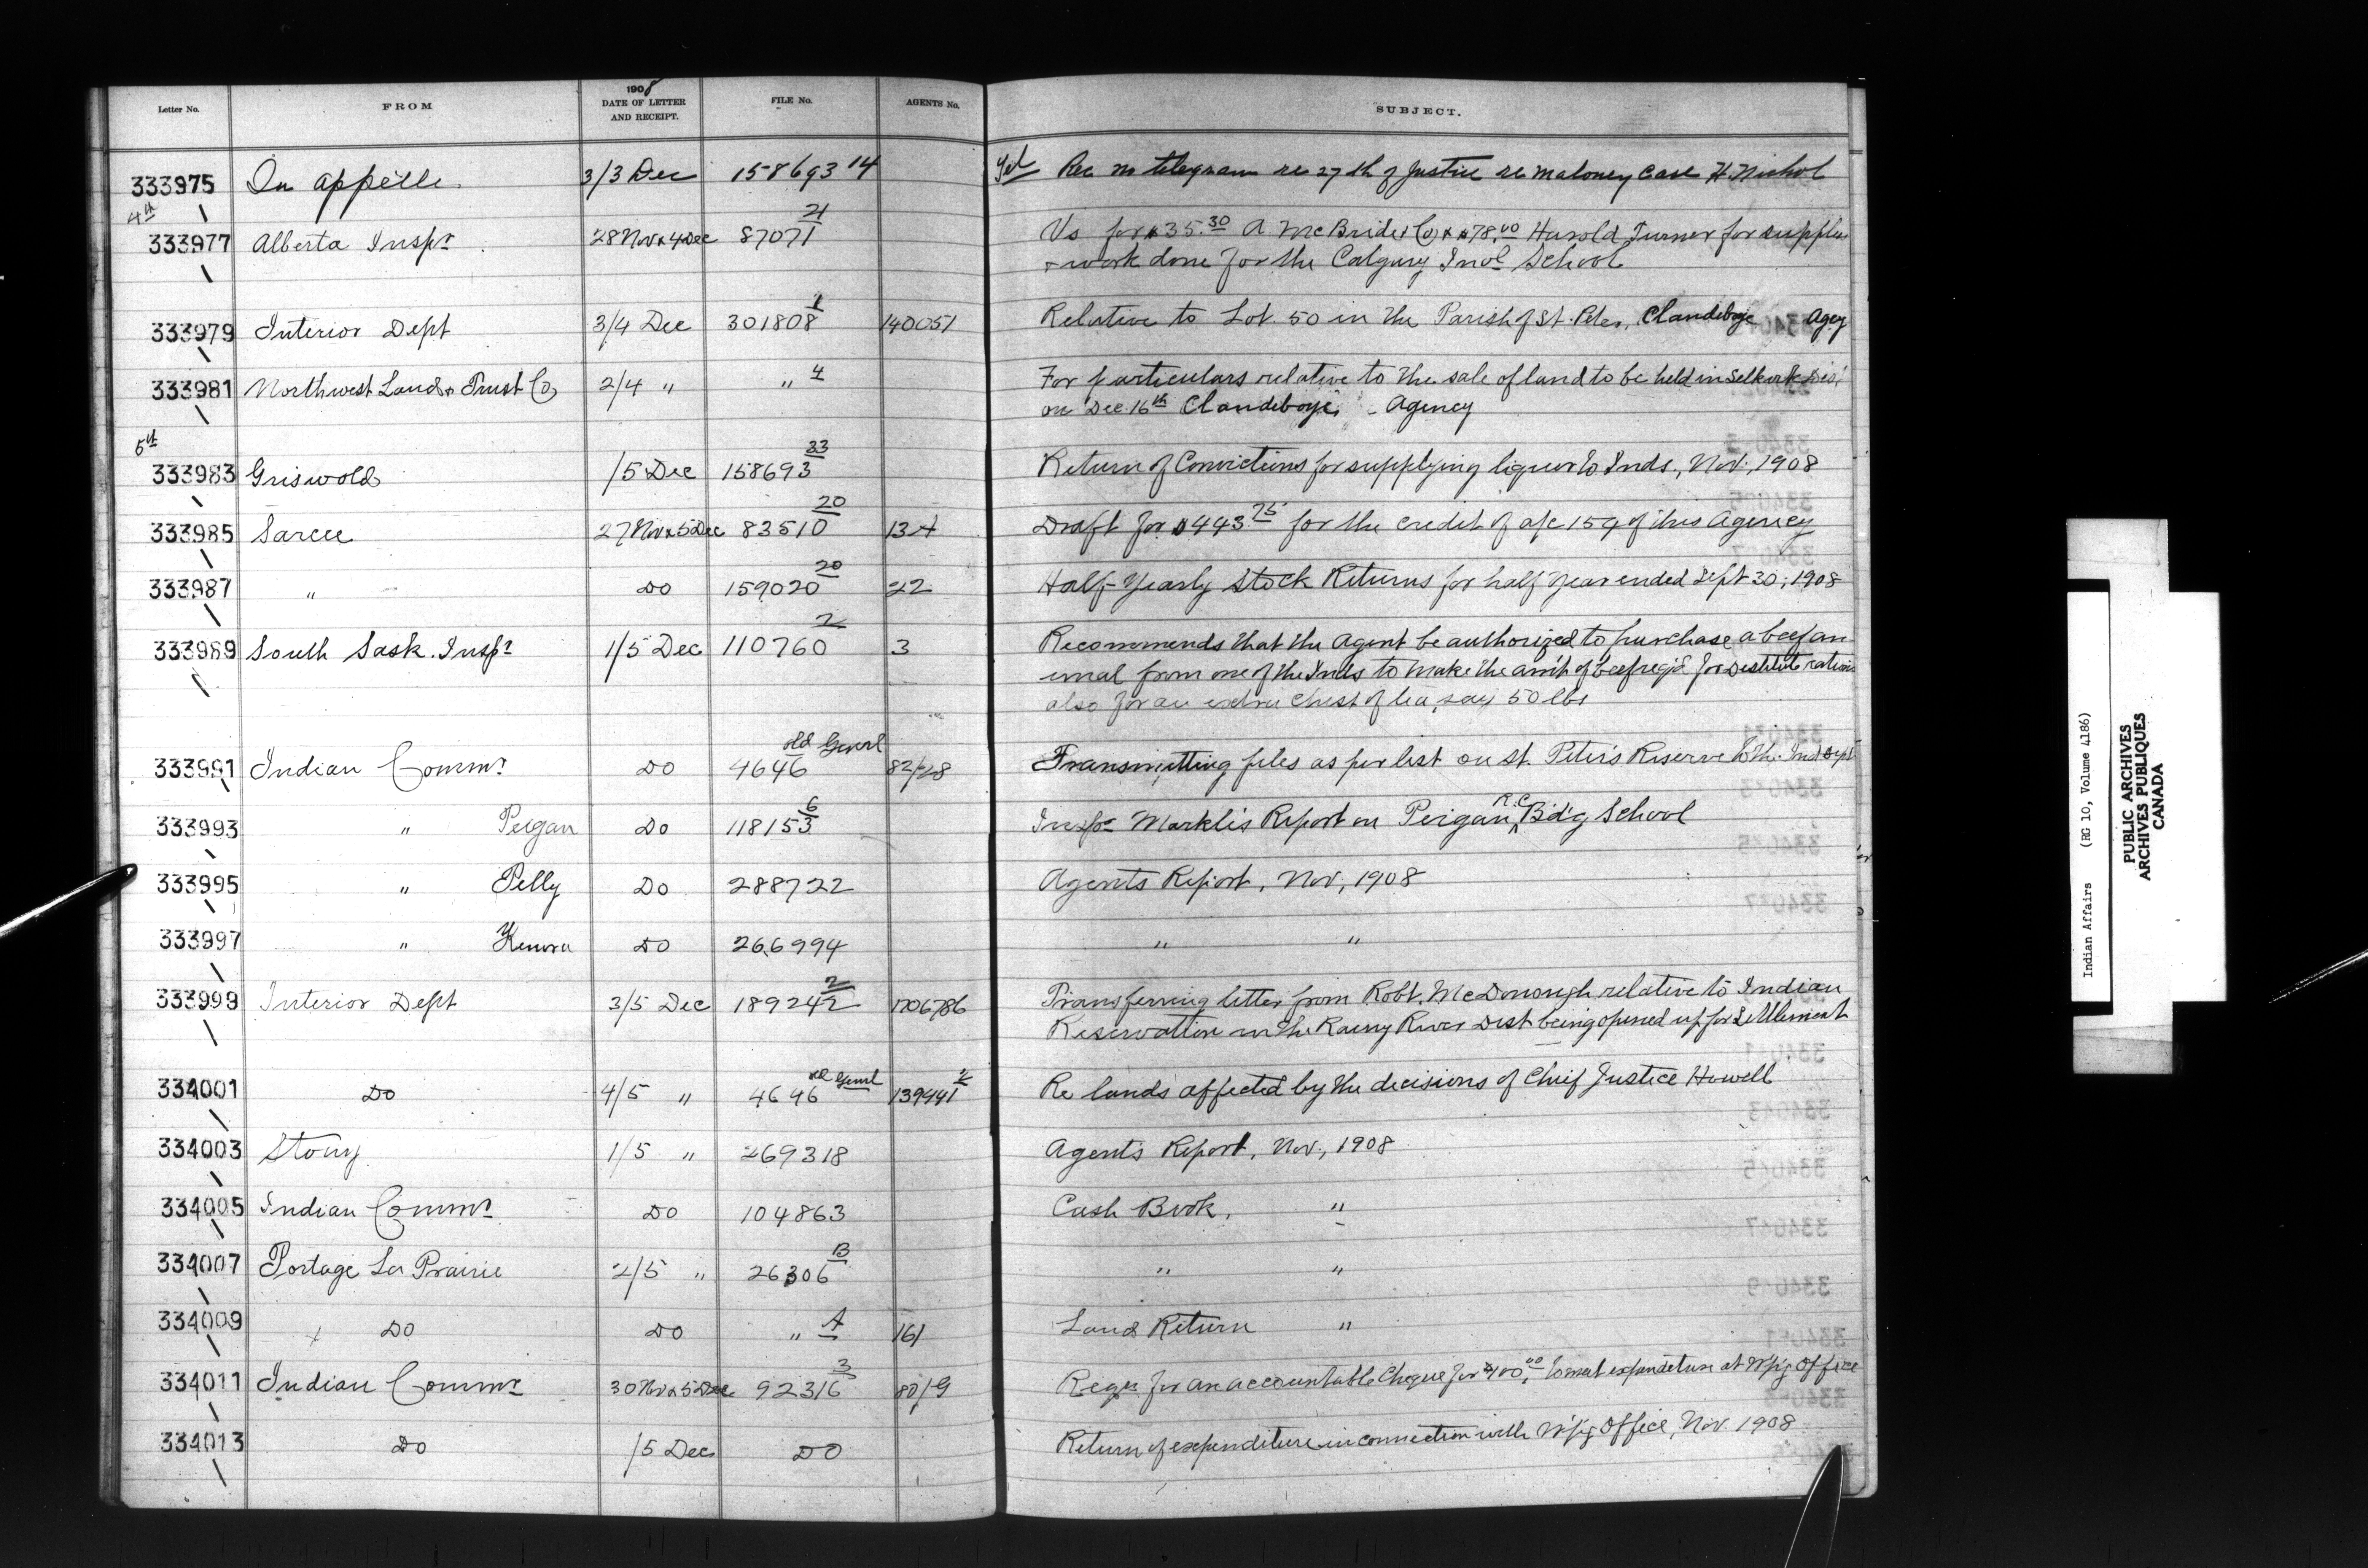 Letter No. FROM 1908 DATE OF LETTER AND RECEIPT. FILE No. AGENTS No. SUBJECT.
333975 Qu appelle 3/3 Dec 158693 14 Rec m telegram re 27th of Justice re Maloney Case H. Nichol
4th
333977 Alberta Inspr 28 Nov & 4 Dec 87071 21 Vs for $35.30 A McBride & Co & $78.00 Harold Turner for supplies
& work done for the Calgary Indl School
333979 Interior Dept 3/4 Dec 301808 1 140051 Relative to Lot. 50 in the Parish of St. Peter, Clandeboye Agcy
333981 Northwest Land & Trust Co 2/4 " " 4 For particulars relative to the sale of land to be held in Selkirk
on Dec. 16th Clandeboye Agency
5th
333983 Griswold /5 Dec 158693 33 Return of Convictions for supplying liquor to Inds., Nov., 1908
333985 Sarcee 27 Nov & 5 Dec 83510 20 13A Draft for $443.75 for the credit of a/c 159 of this Agency
333987 " Do 159020 20 22 Half-Yearly Stock Returns for half year ended Sept 30, 1908
333989 South Sask. Inspr 1/5 Dec 110760 2 3 Recommends that the Agent be authorized to purchase a beef an
imal from one of the Inds to make the am't of beef req'd for destitute rations
also for an extra chest of tea, say 50 lbs
333991 Indian Commr Do 4646 old Genrl 82/28 Transmitting files as per list on St. Peter's Reserve to the Ind Dept
333993 " Peigan Do 118153 6 Inspr Markle's Report on Peigan R.C. Bd'g School
333995 " Pelly Do 288722 Agents Report, Nov, 1908
333997 " Kenora Do 266994 " "
333999 Interior Dept 3/5 Dec 189242 2 1706786 Transferring letter from Robt. McDonough relative to Indian
Reservation in the Rainy River Dist being opened up for Settlement
334001 Do 4/5 " 4646 old Genrl 139441 2 Re lands affected by the decisions of Chief Justice Howell
334003 Stony 1/5 " 269318 Agent's Report, Nov., 1908
334005 Indian Commr Do 104863 Cash Book, "
334007 Portage La Prairie 2/5 " 26306 B " "
334009 Do Do " A 161 Land Return "
334011 Indian Commr 30 Nov & 5 Dec 92316 3 80/9 Reqn for an accountable Cheque for $100.00 to meet expenditure at W'p'g Office
334013 Do /5 Dec Do Return of expenditure in connection with W'p'g Office, Nov. 1908
Indian Affairs (RG 10, Volume 4186)
PUBLIC ARCHIVES
ARCHIVES PUBLIQUES
CANADA